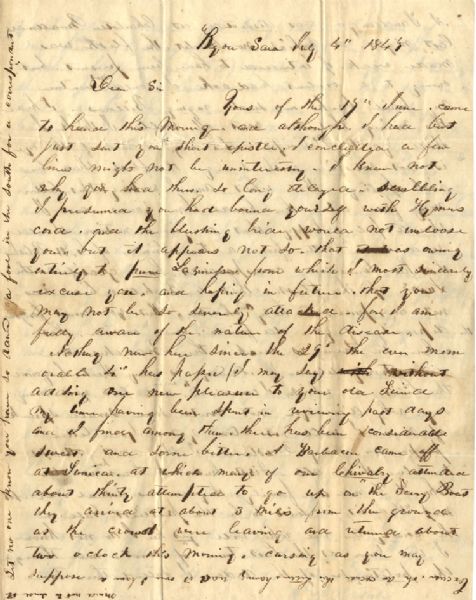 Bayou Sara July 4th 184
Dear Sir
Yours of the 17th June came
to hand this Morning and although I had but
just sent you a short epistle, I concluded a few
lines might not be uninteresting. I knew not
why you had thus so long delayed scribbling
I presumed you had bound yourself with Hymens
cord and the blushing bride would not unloose
yours but it appears not so. that was owing
entirely to pure from which I most sincerely
excuse you, and hoping in future that you
may not be so severely attacked. for I am
fully aware of the nature of the disease.
Nothing new here since the 29th the ever mem
orable 4th has passed I may say without
adding one new pleasure to your old friend
my time having been spent in reviewing past days
and I find among them there has been considerable
sweet and some bitter. A Barbacue came off
at Tunica. at which many of our Chivalry attended
about thirty attempted to go up on the Ferry Boat
they arrived at about 3 Miles from the ground
as the crowd were leaving and returned about
two oclock this Morning. cursing as you may
suppose
Let no one know you have so dam'd a fool in the South for a correspondent